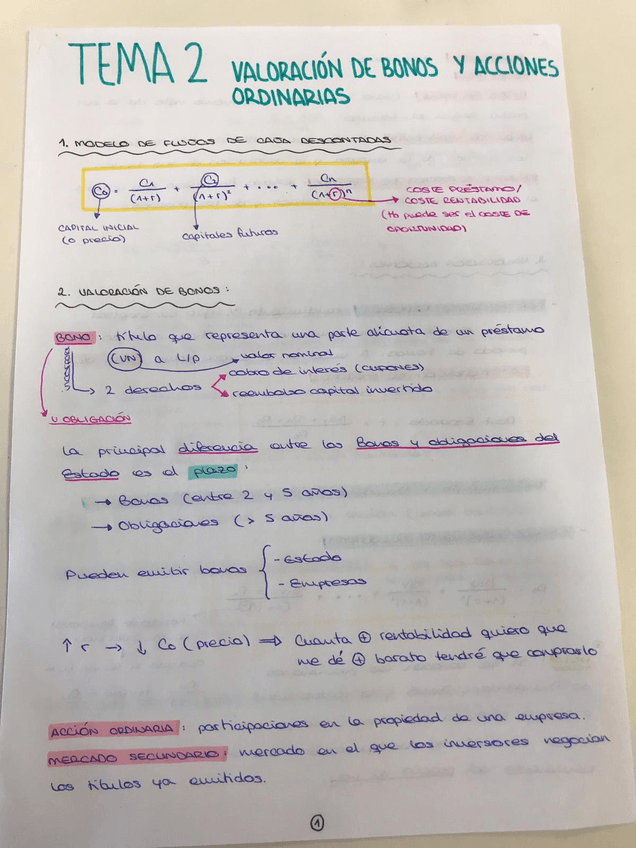 TEMA 2 VALORACIÓN DE BONOS Y ACCIONES
ORDINARIAS
1. MODELO DE FLUJOS DE CAJA DESCONTADAS
C₀ = C₁/(1+r) + C₂/(1+r)² + ... + Cn/(1+r)ⁿ
COSTE PRÉSTAMO/
COSTE RENTABILIDAD
(Ho puede ser el COSTE DE
OPORTUNIDAD)
CAPITAL INICIAL
(o precio)
capitales futuros
2. VALORACIÓN DE BONOS:
BONO: título que representa una parte alícuota de un préstamo
(VN) a L/P
valor nominal
incorpora
2 derechos
cobro de interés (CUPONES)
reembolso capital invertido
U OBLIGACIÓN
La principal diferencia entre los Bonos y obligaciones del
Estado es el plazo:
→ Bonos (entre 2 y 5 años)
→ Obligaciones (> 5 años)
Pueden emitir bonos
- Estado
- Empresas
↑ r → ↓ C₀ (precio) ⇒ Cuanta ⊕ rentabilidad quiero que
me dé ⊕ barato tendré que comprarlo
ACCIÓN ORDINARIA: participaciones en la propiedad de una empresa.
MERCADO SECUNDARIO: mercado en el que los inversores negocian
los títulos ya emitidos.
1